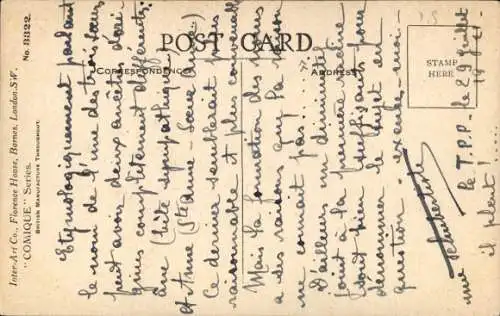 POST CARD
CORRESPONDENCE
ADDRESS
STAMP
HERE
Inter-Art Co., Florence House, Barnes, London, S.W.
"COMIQUE" Series. No. 3322.
BRITISH MANUFACTURE THROUGHOUT.
Etymologiquement parlant
le nom de l'une des trois sœurs
peut avoir deux ancêtres d'ori-
gines complètement différentes:
âne (bête sympathique)
et Anne (Ste Anne - Sœur Anne)
Ce dernier semblerait plus
raisonnable et plus convenable
Mais la formation des noms
a des raisons que la raison
ne connait pas...
D'ailleurs un diminutif
joint à la première racine
peut bien suffisants pour
dénommer le sujet en
question - excusez-moi -
une
le T.P.P. - le 29 Juillet
il pleut!...